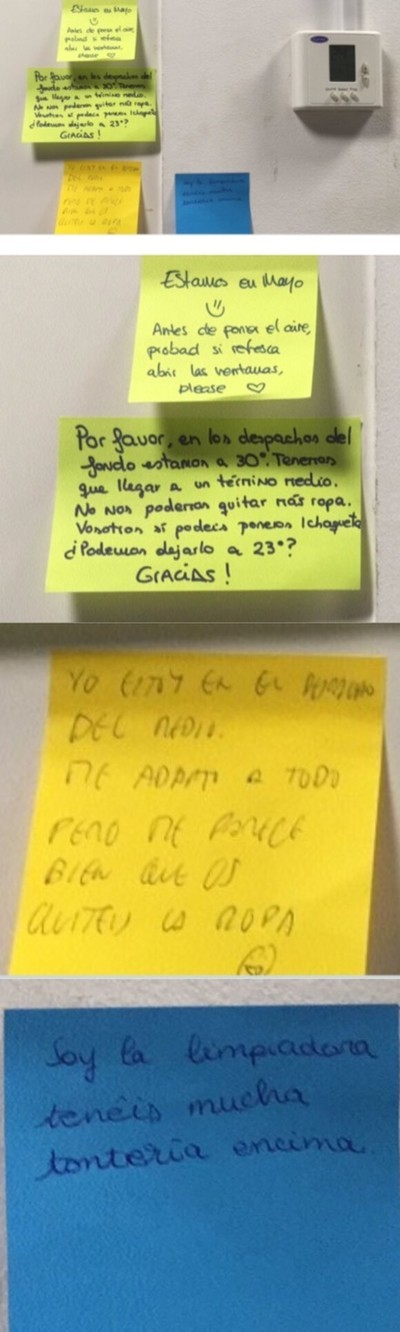 Estamos en Mayo
Antes de poner el aire,
probad si refresca
abrir las ventanas,
please ♡
Por favor, en los despachos del
fondo estamos a 30°. Tenemos
que llegar a un término medio.
No nos podemos quitar más ropa.
Vosotros sí podeis poneros 1 chaqueta
¿Podemos dejarlo a 23°?
GRACIAS!
Estamos en Mayo
Antes de poner el aire,
probad si refresca
abrir las ventanas,
please ♡
Por favor, en los despachos del
fondo estamos a 30°. Tenemos
que llegar a un término medio.
No nos podemos quitar más ropa.
Vosotros sí podeis poneros 1 chaqueta
¿Podemos dejarlo a 23°?
GRACIAS!
YO ESTOY EN EL DESPACHO
DEL MEDIO.
ME ADAPTO A TODO
PERO ME PARECE
BIEN QUE OS
QUITEIS LA ROPA
Soy la limpiadora
tenéis mucha
tontería encima.